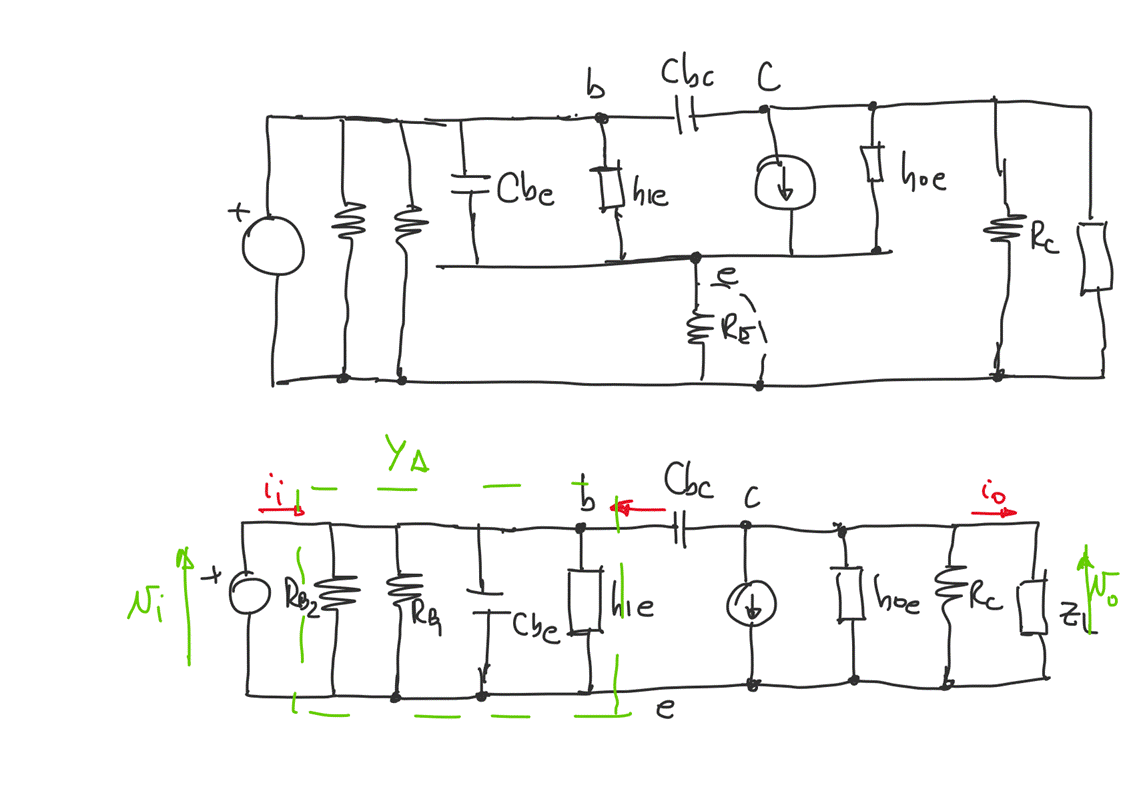 b
Cbc
C
+
Cbe
h1e
hoe
Rc
e
RE
YΔ
ii
b
Cbc
c
io
+
Ni
RB2
RB1
Cbe
h1e
hoe
Rc
ZL
No
e